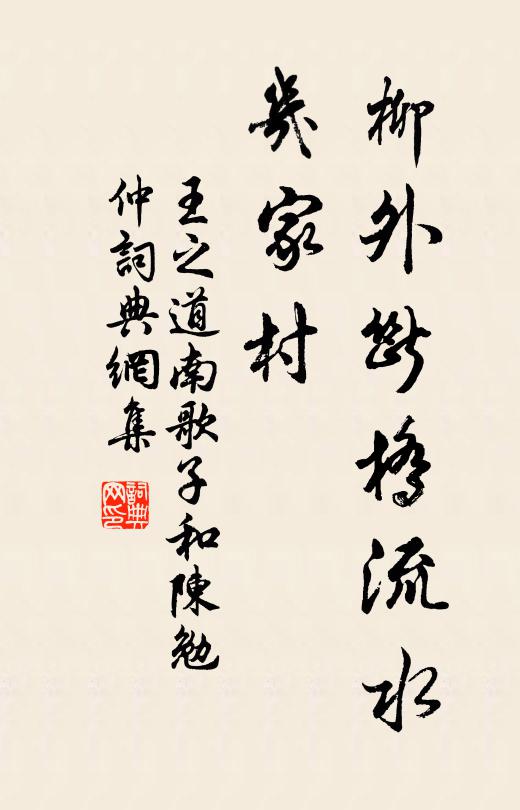 柳外斷橋流水
幾家村
王之道南歌子和陳勉
仲詞典網集
詞典
网印